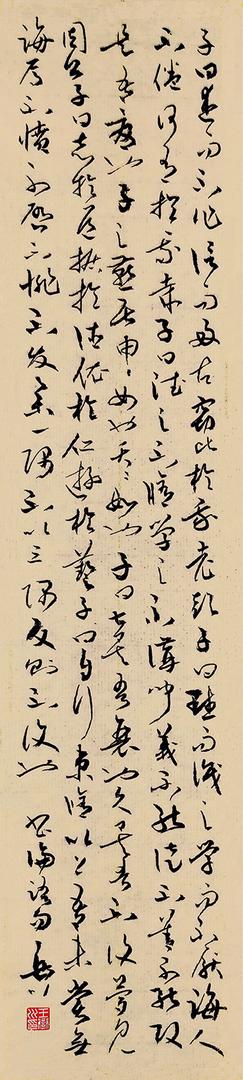 子曰述而不作信而好古竊比於我老彭子曰默而識之學而不厭誨人
不倦何有於我哉子曰德之不脩學之不講聞義不能徙不善不能改
是吾憂也子之燕居申〻如也夭〻如也子曰甚矣吾衰也久矣吾不復夢見
周公子曰志於道據於德依於仁遊於藝子曰自行束脩以上吾未嘗無
誨焉不憤不啓不悱不發舉一隅不以三隅反則不復也 書論語句